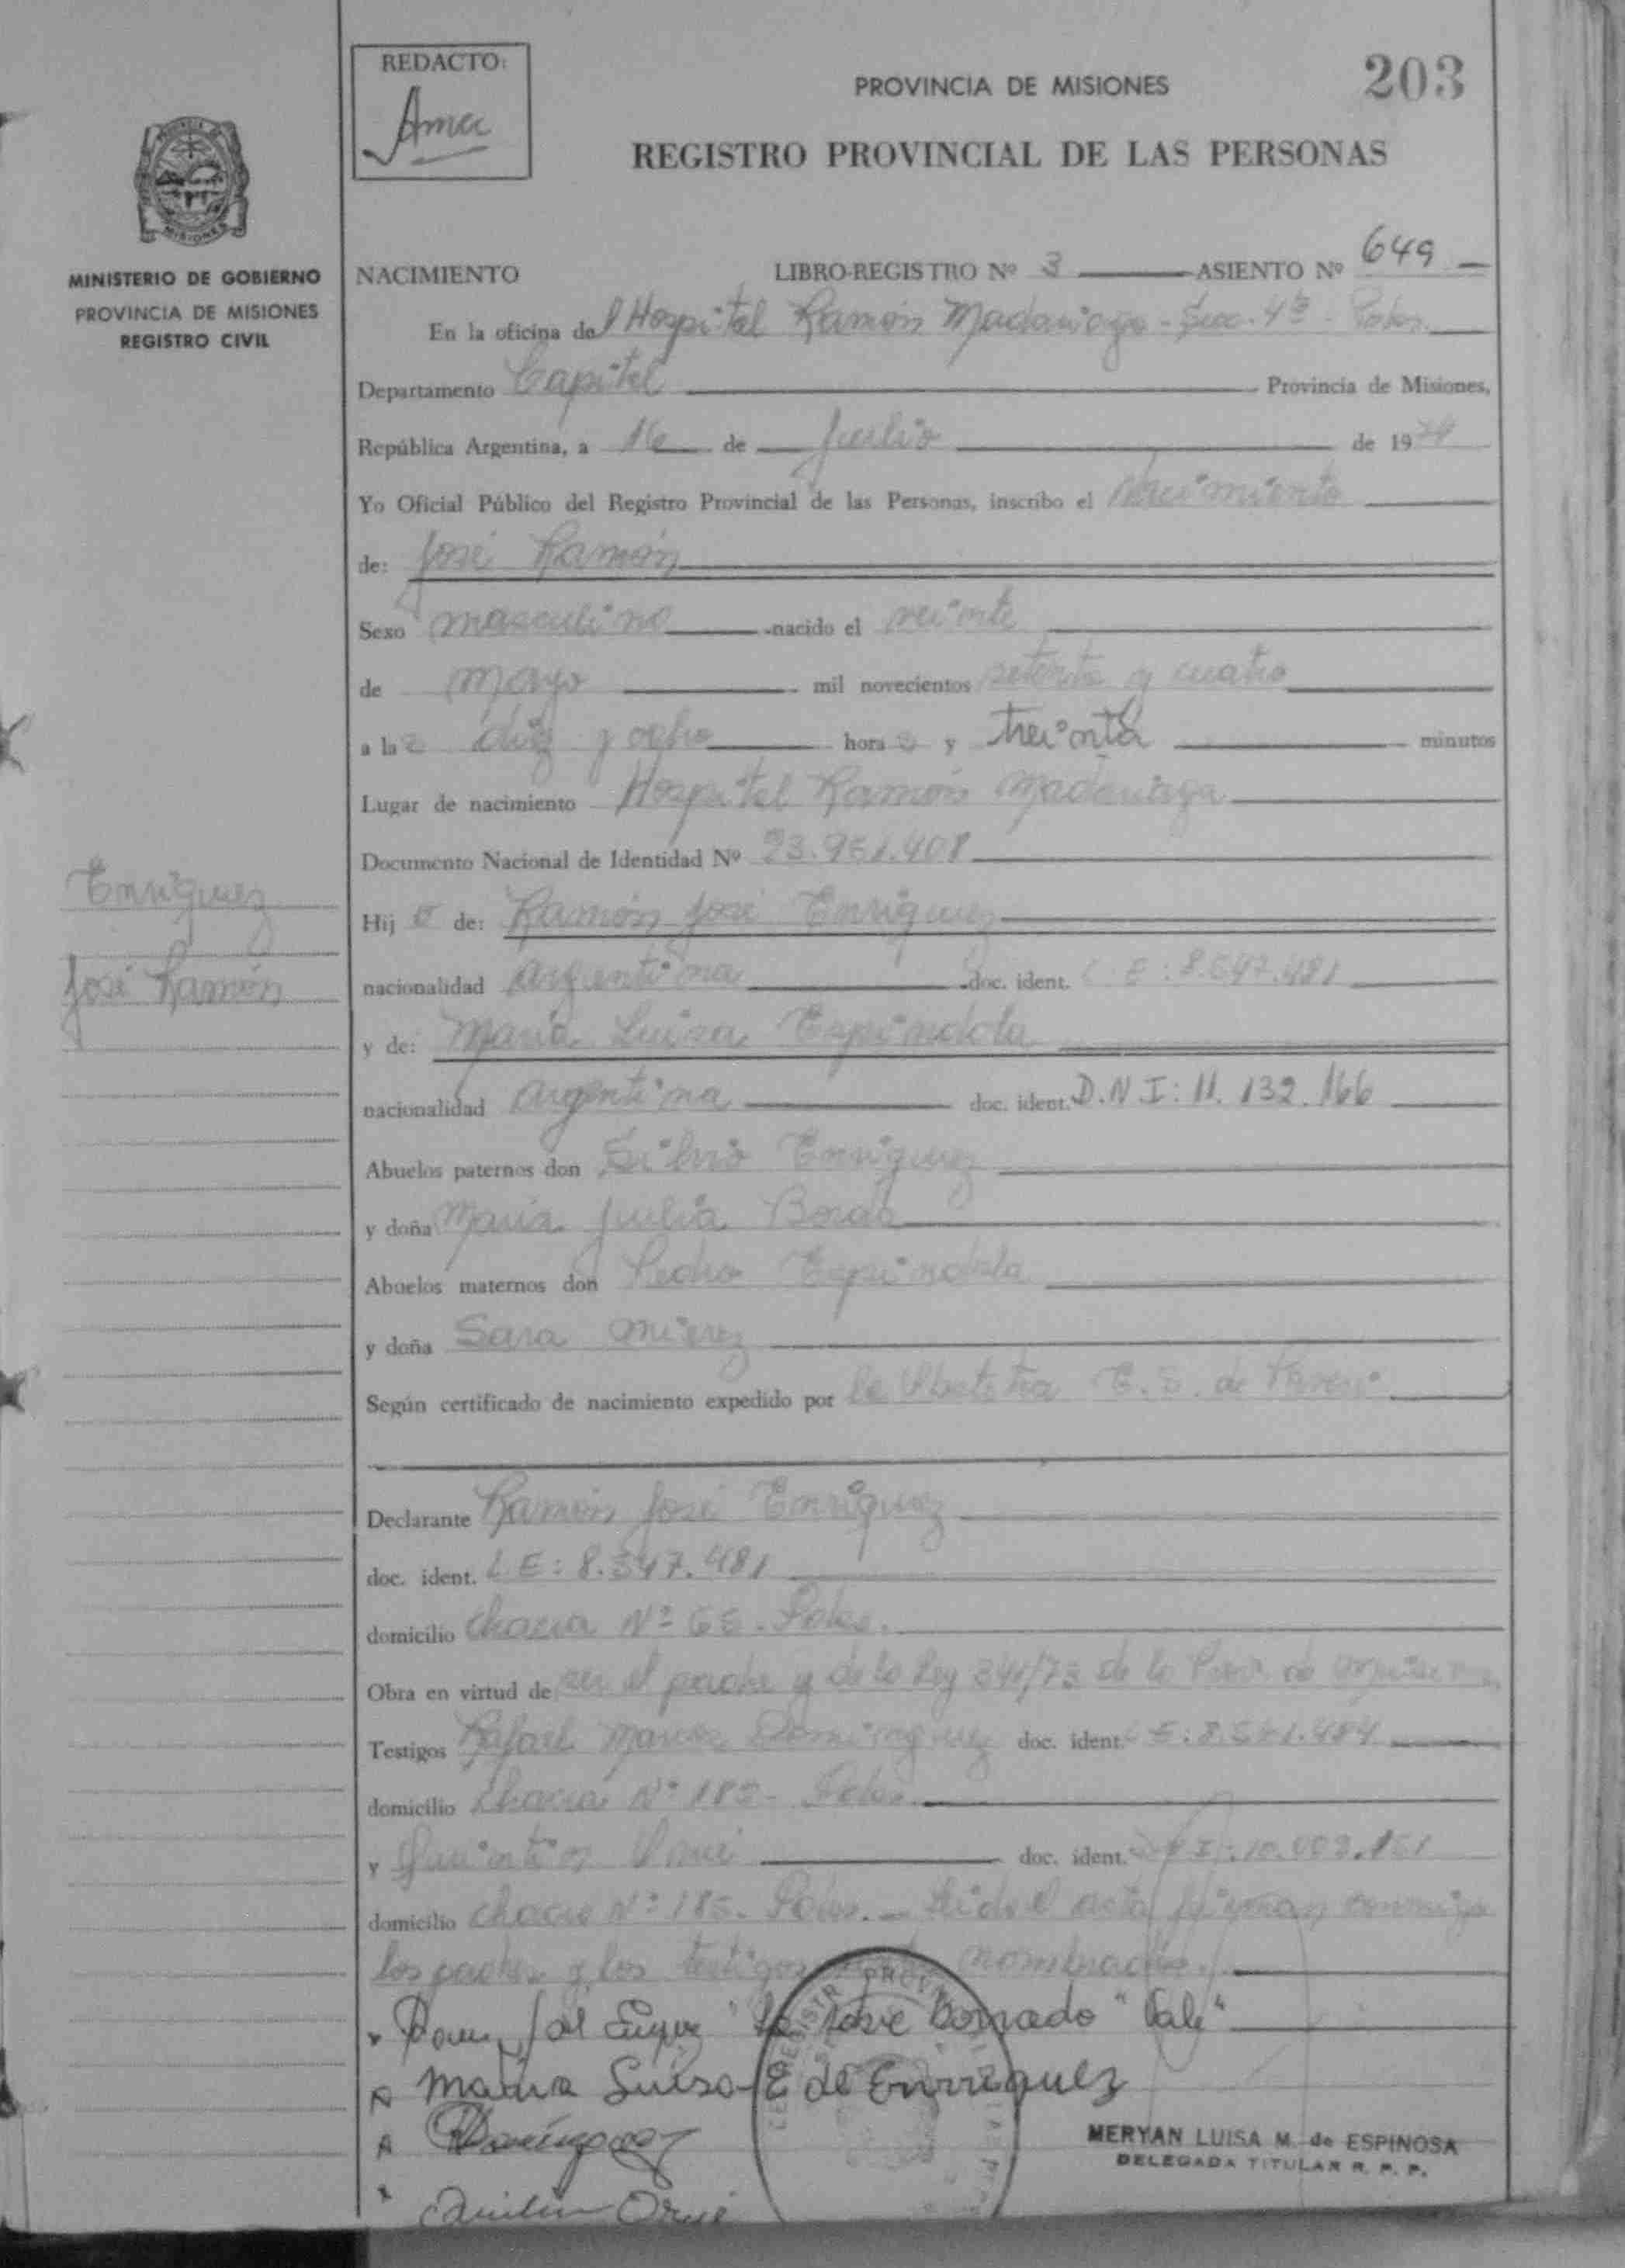 REDACTO:
Ama
PROVINCIA DE MISIONES
203
REGISTRO PROVINCIAL DE LAS PERSONAS
MISIONES
MINISTERIO DE GOBIERNO
PROVINCIA DE MISIONES
REGISTRO CIVIL
NACIMIENTO LIBRO-REGISTRO Nº 3 ASIENTO Nº 649
En la oficina del Hospital Ramón Madariaga - Secc. 4ta - Pdas.
Departamento Capital Provincia de Misiones,
República Argentina, a 16 de Julio de 1974
Yo Oficial Público del Registro Provincial de las Personas, inscribo el Nacimiento
de: José Ramón
Sexo masculino nacido el veinte
de mayo mil novecientos setenta y cuatro
a las diez y ocho horas y treinta minutos
Lugar de nacimiento Hospital Ramón Madariaga
Documento Nacional de Identidad Nº 23.951.408
Enriquez
José Ramón
Hijo de: Ramón José Enriquez
nacionalidad argentina doc. ident. L E: 8.547.481
y de: María Luisa Espindola
nacionalidad argentina doc. ident. D.N.I: 11.132.166
Abuelos paternos don Silvio Enriquez
y doña María Julia
Abuelos maternos don Pedro Espindola
y doña Sara Mierez
Según certificado de nacimiento expedido por la Obstetra E. S. de
Declarante Ramón José Enriquez
doc. ident. L E: 8.547.481
domicilio Chacra Nº Pdas.
Obra en virtud de ser el padre y de la Ley de la Pcia. de Misiones
Testigos Rafael Dominguez doc. ident. L E:
domicilio Chacra Nº 185 - Pdas.
y Quintin doc. ident. D.N.I: 10.003.151
domicilio Chacra Nº 185. Pdas. - Leida el acta firman conmigo
los padres y los testigos nombrados.
Ramon José Enriquez "Vale"
Maria Luisa E de Enrriquez
Dominguez
Quintin Orué
MERYAN LUISA M. de ESPINOSA
DELEGADA TITULAR R. P. P.